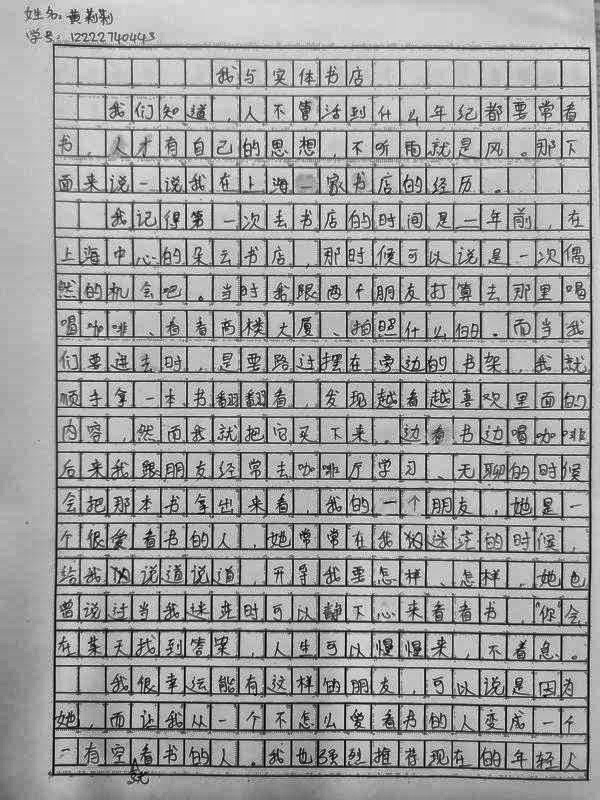 姓名：黄莉莉
学号：12222740443
我与实体书店
我们知道，人不管活到什么年纪都要常看
书，人才有自己的思想，不听雨就是风。那下
面来说一说我在上海一家书店的经历。
我记得第一次去书店的时间是一年前，在
上海中心的朵云书店，那时候可以说是一次偶
然的机会吧。当时我跟两个朋友打算去那里喝
喝咖啡、看看高楼大厦、拍照什么的。而当我
们要进去时，是要路过摆在旁边的书架，我就
顺手拿一本书翻翻看，发现越看越喜欢里面的
内容，然而我就把它买下来。边看书边喝咖啡
后来我跟朋友经常去咖啡厅学习、无聊的时候
会把那本书拿出来看，我的一个朋友，她是一
个很爱看书的人，她常常在我迷茫的时候，
给我说道说道，开导我要怎样、怎样，她也
曾说过当我迷茫时可以静下心来看看书，“你会
在某天找到答案，人生可以慢慢来，不着急。
我很幸运能有这样的朋友，可以说是因为
她，而让我从一个不怎么爱看书的人变成一个
一有空看书的人。我也强烈推荐现在的年轻人
就